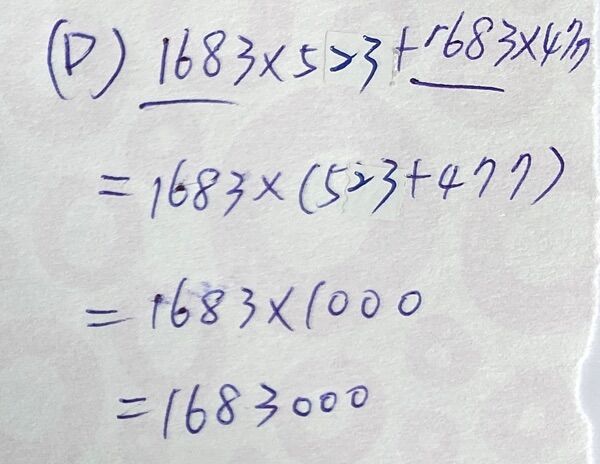 (D) 1683×523+1683×477
=1683×(523+477)
=1683×1000
=1683000